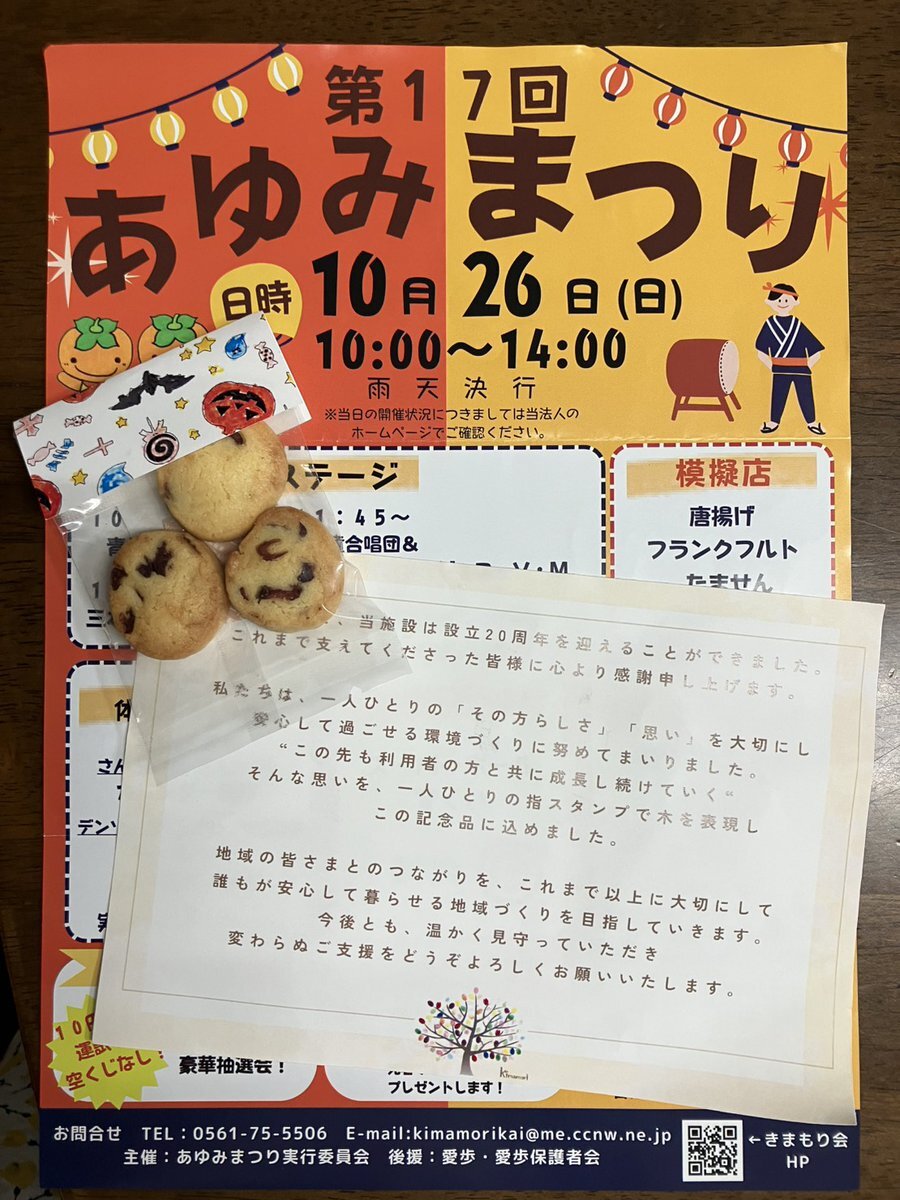 第17回
あゆみまつり
日時
10月26日(日)
10:00～14:00
雨天決行
※当日の開催状況につきましては当法人の
ホームページでご確認ください。
ステージ
1：45～
合唱団&
模擬店
唐揚げ
フランクフルト
たません
当施設は設立20周年を迎えることができました。
これまで支えてくださった皆様に心より感謝申し上げます。
私たちは、一人ひとりの「その方らしさ」「思い」を大切にし
安心して過ごせる環境づくりに努めてまいりました。
“この先も利用者の方と共に成長し続けていく“
そんな思いを、一人ひとりの指スタンプで木を表現し
この記念品に込めました。
地域の皆さまとのつながりを、これまで以上に大切にして
誰もが安心して暮らせる地域づくりを目指していきます。
今後とも、温かく見守っていただき
変わらぬご支援をどうぞよろしくお願いいたします。
Kimamori
空くじなし！
豪華抽選会！
プレゼントします！
お問合せ TEL：0561-75-5506 E-mail:kimamorikai@me.ccnw.ne.jp
主催：あゆみまつり実行委員会 後援：愛歩・愛歩保護者会
←きまもり会
HP